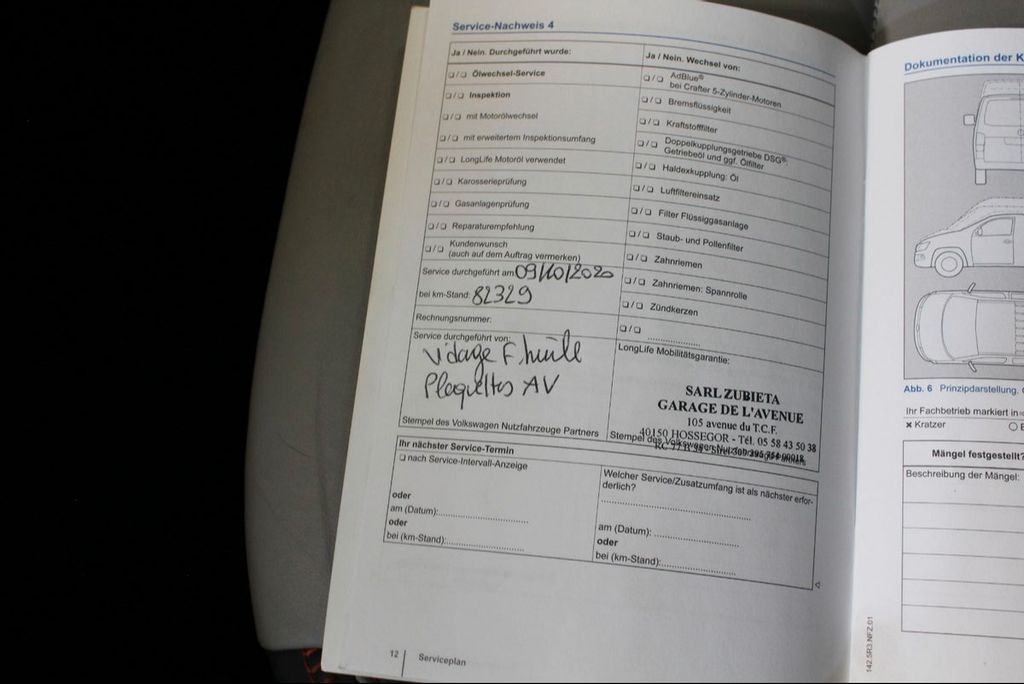 Service-Nachweis 4
Ja / Nein. Durchgeführt wurde:
❑ / ❑ Ölwechsel-Service
❑ / ❑ Inspektion
❑ / ❑ mit Motorölwechsel
❑ / ❑ mit erweitertem Inspektionsumfang
❑ / ❑ LongLife Motoröl verwendet
❑ / ❑ Karosserieprüfung
❑ / ❑ Gasanlagenprüfung
❑ / ❑ Reparaturempfehlung
❑ / ❑ Kundenwunsch
(auch auf dem Auftrag vermerken)
Service durchgeführt am: 09/10/2020
bei km-Stand: 82329
Rechnungsnummer:
Service durchgeführt von:
vidage F. huile
Plaquettes AV
Stempel des Volkswagen Nutzfahrzeuge Partners
Ja / Nein. Wechsel von:
❑ / ❑ AdBlue®
bei Crafter 5-Zylinder-Motoren
❑ / ❑ Bremsflüssigkeit
❑ / ❑ Kraftstofffilter
❑ / ❑ Doppelkupplungsgetriebe DSG®:
Getriebeöl und ggf. Ölfilter
❑ / ❑ Haldexkupplung: Öl
❑ / ❑ Luftfiltereinsatz
❑ / ❑ Filter Flüssiggasanlage
❑ / ❑ Staub- und Pollenfilter
❑ / ❑ Zahnriemen
❑ / ❑ Zahnriemen: Spannrolle
❑ / ❑ Zündkerzen
❑ / ❑
LongLife Mobilitätsgarantie:
SARL ZUBIETA
GARAGE DE L'AVENUE
105 avenue du T.C.F.
40150 HOSSEGOR - Tél. 05 58 43 50 38
Stempel des Volkswagen Nutzfahrzeuge Partners
Ihr nächster Service-Termin
❑ nach Service-Intervall-Anzeige
oder
am (Datum):
oder
bei (km-Stand):
Welcher Service/Zusatzumfang ist als nächster erfor-
derlich?
am (Datum):
oder
bei (km-Stand):
12 Serviceplan
Dokumentation der K
Abb. 6 Prinzipdarstellung.
Ihr Fachbetrieb markiert in
x Kratzer
Mängel festgestellt?
Beschreibung der Mängel:
142.5R3.NFZ.01